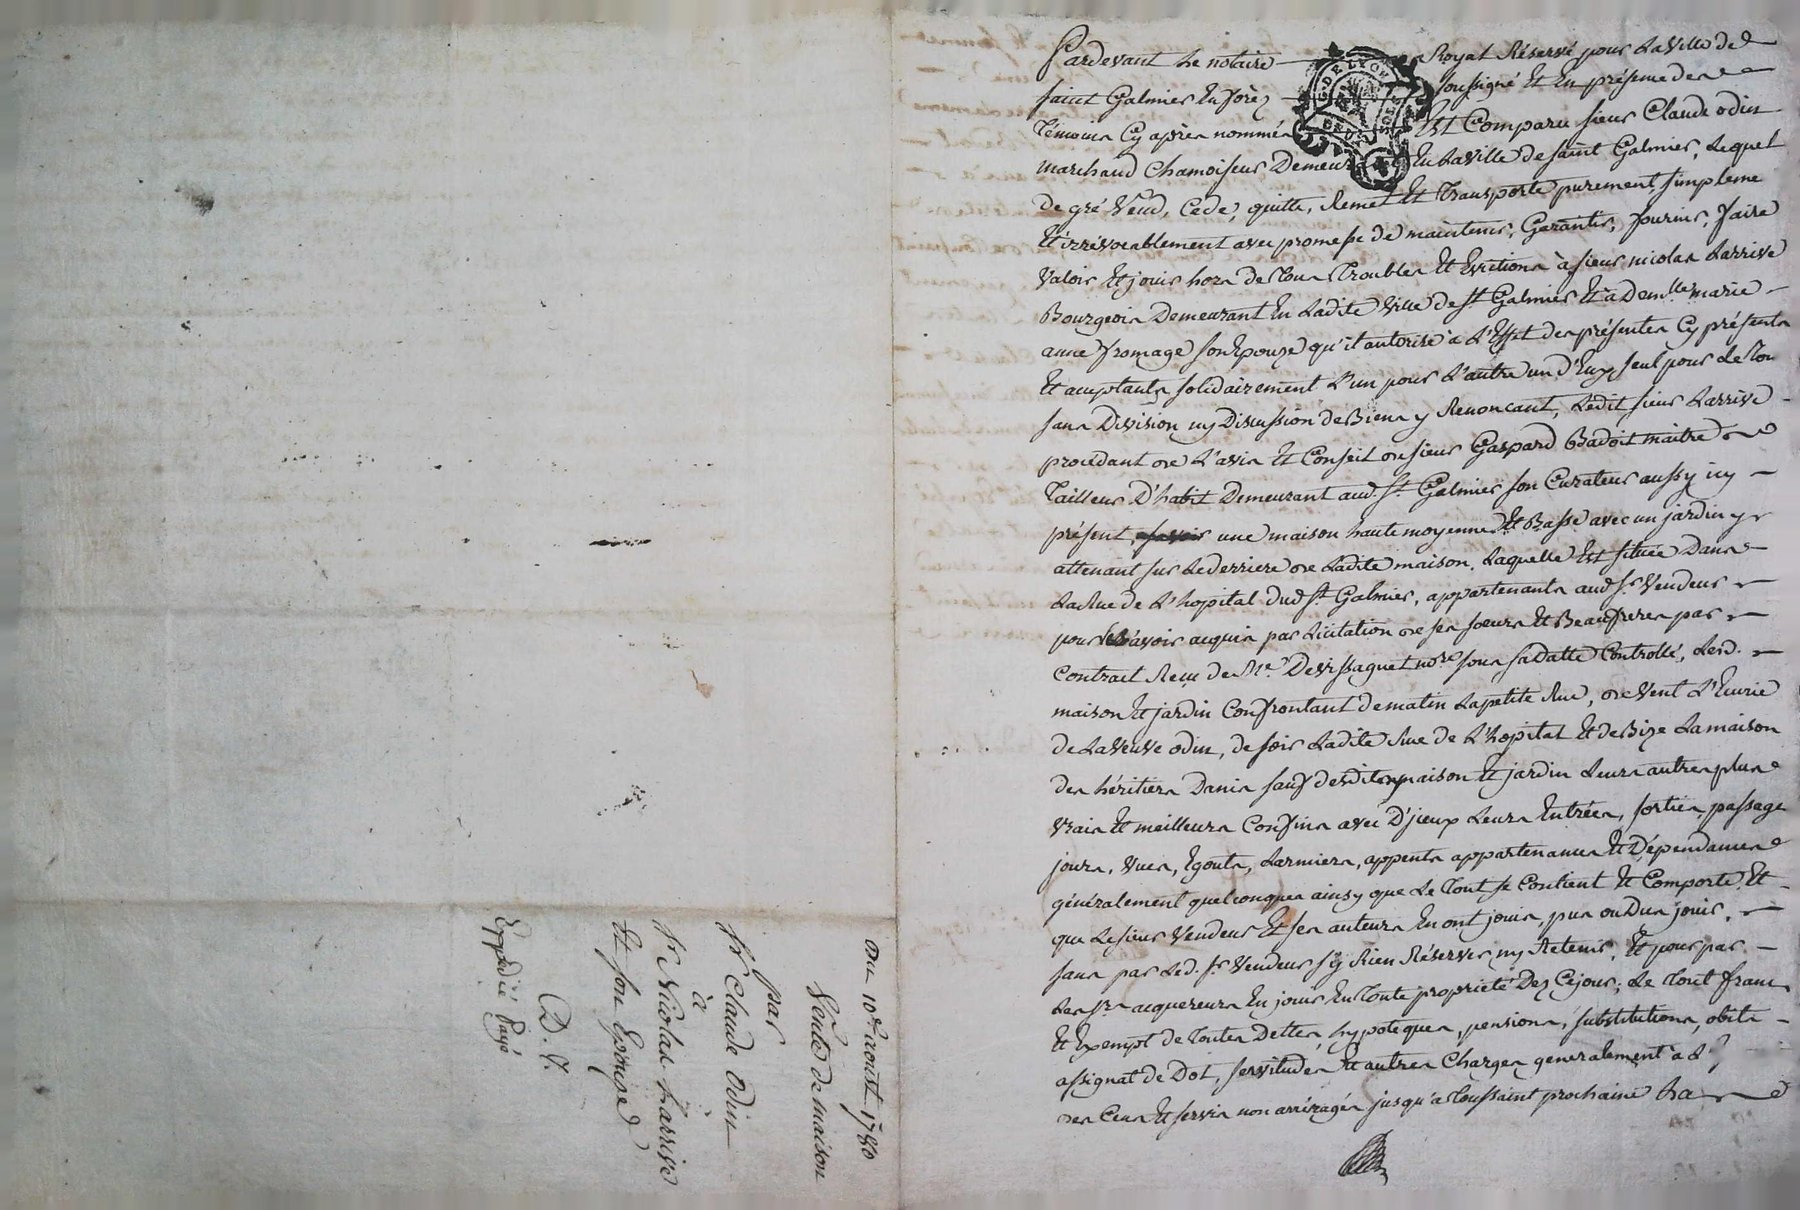 Pardevant Le notaire Royal Réservé pour La Ville de
saint Galmier En forèz soussigné Et En présence des
Témoins Cy après nommés Est Comparu sieur Claude odin
marchand Chamoiseur Demeurant En La Ville de saint Galmier, Lequel
de gré Vend, Cede, quitte, Remet Et Transporte purement, simpleme
Et irrévocablement avec promesse de maintenir, Garantir, fournir, faire
Valoir Et jouir hors de Tous Troubles Et Evictions à sieur nicolas Larrive
Bourgeois Demeurant En Ladite Ville de St Galmier Et à Demlle marie
anne fromage son Epouze qu'il autorise à L'Effet des présentes Cy présents
Et acceptants solidairement L'un pour L'autre un d'Eux seul pour Le Tou
sans Division ny Discussion de Biens y Renoncant, Ledit sieur Larrive
procédant de L'avis Et Conseil de sieur Gaspard Badoit maitre
Tailleur D'habit Demeurant aud. St Galmier son Curateur aussy icy
présent, une maison haute moyenne Et Basse avec un jardin y
attenant sur Le derriere de Ladite maison, Laquelle Est située Dans
La Rue de L'hopital dud St Galmier, appartenants aud sr Vendeur
pour Les avoir acquis par Licitation de ses soeurs Et Beaufreres par
Contract Reçu de Me Devissaguet nore sous sa Datte Controllé, Lesd.
maison Et jardin Confrontant de matin La petite Rue, de Vent L'Ecurie
de La Veuve odin, de soir Ladite Rue de L'hopital Et de Bize La maison
des héritiers Danis sauf desdites maison Et jardin Leurs autres plus
Vrais Et meilleurs Confins avec D'jceux Leurs Entrées, sorties, passage
jours, Vues, Egouts, Larmiers, appents appartenances Et Dépendances
généralement quelconques ainsy que Le Tout se Contient Et Comporte, Et
que Le sieur Vendeur Et ses auteurs En ont jouis, pus ou Dus jouir,
sans par Led. sr Vendeur s'y Rien Réserver ny Retenir, Et pour par
Les srs acquereurs En jouir En Toute propriété Dez Cejour; Le Tout franc
Et Exempt de Toutes Dettes, hypoteques, pensions, substitutions, obits
assignat de Dot, servitudes Et autres Charges generalement à L'
des Cens Et servis non arréragés jusqu'a Toussaint prochaine La
Du 10e aout 1780
Vente de maison
par
sr Claude Odin
à
sr Nicolas Larrive
Et son Epouse
D. V.
Expédié Payé